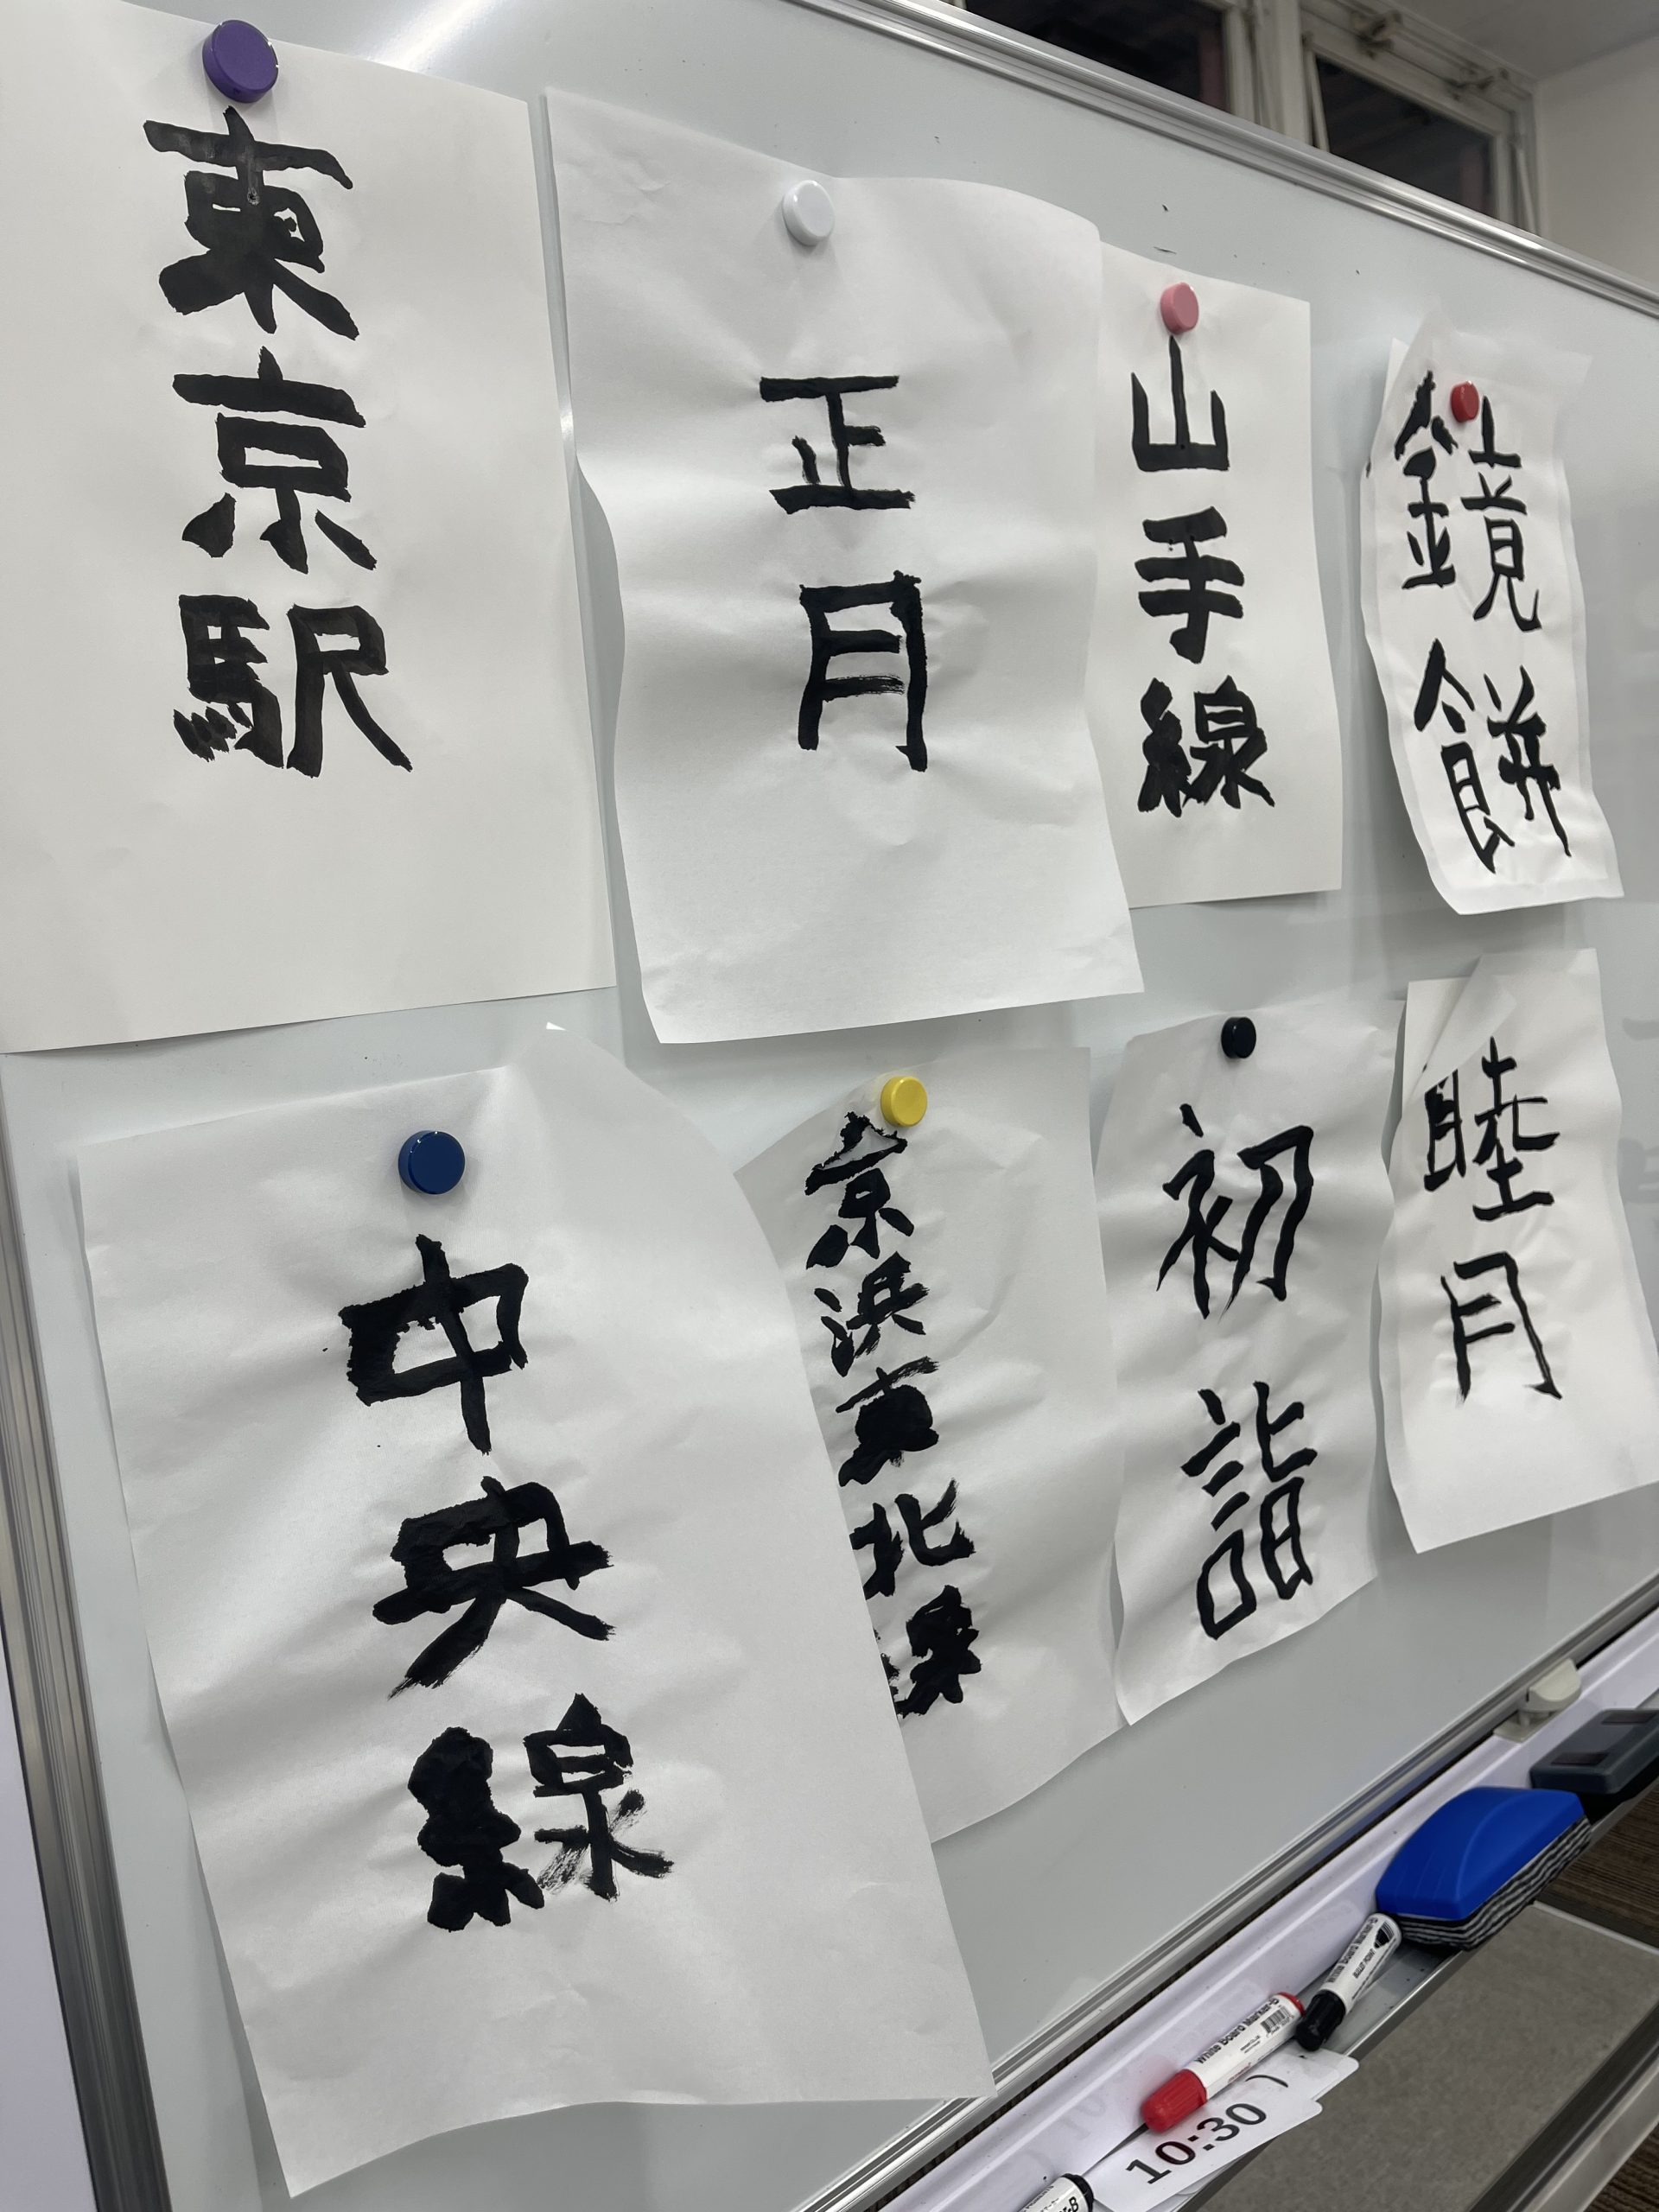 東京駅
正月
山手線
鏡餅
中央線
京浜東北線
初詣
睦月
White Board Marker-B
White Board Marker-B
10:30